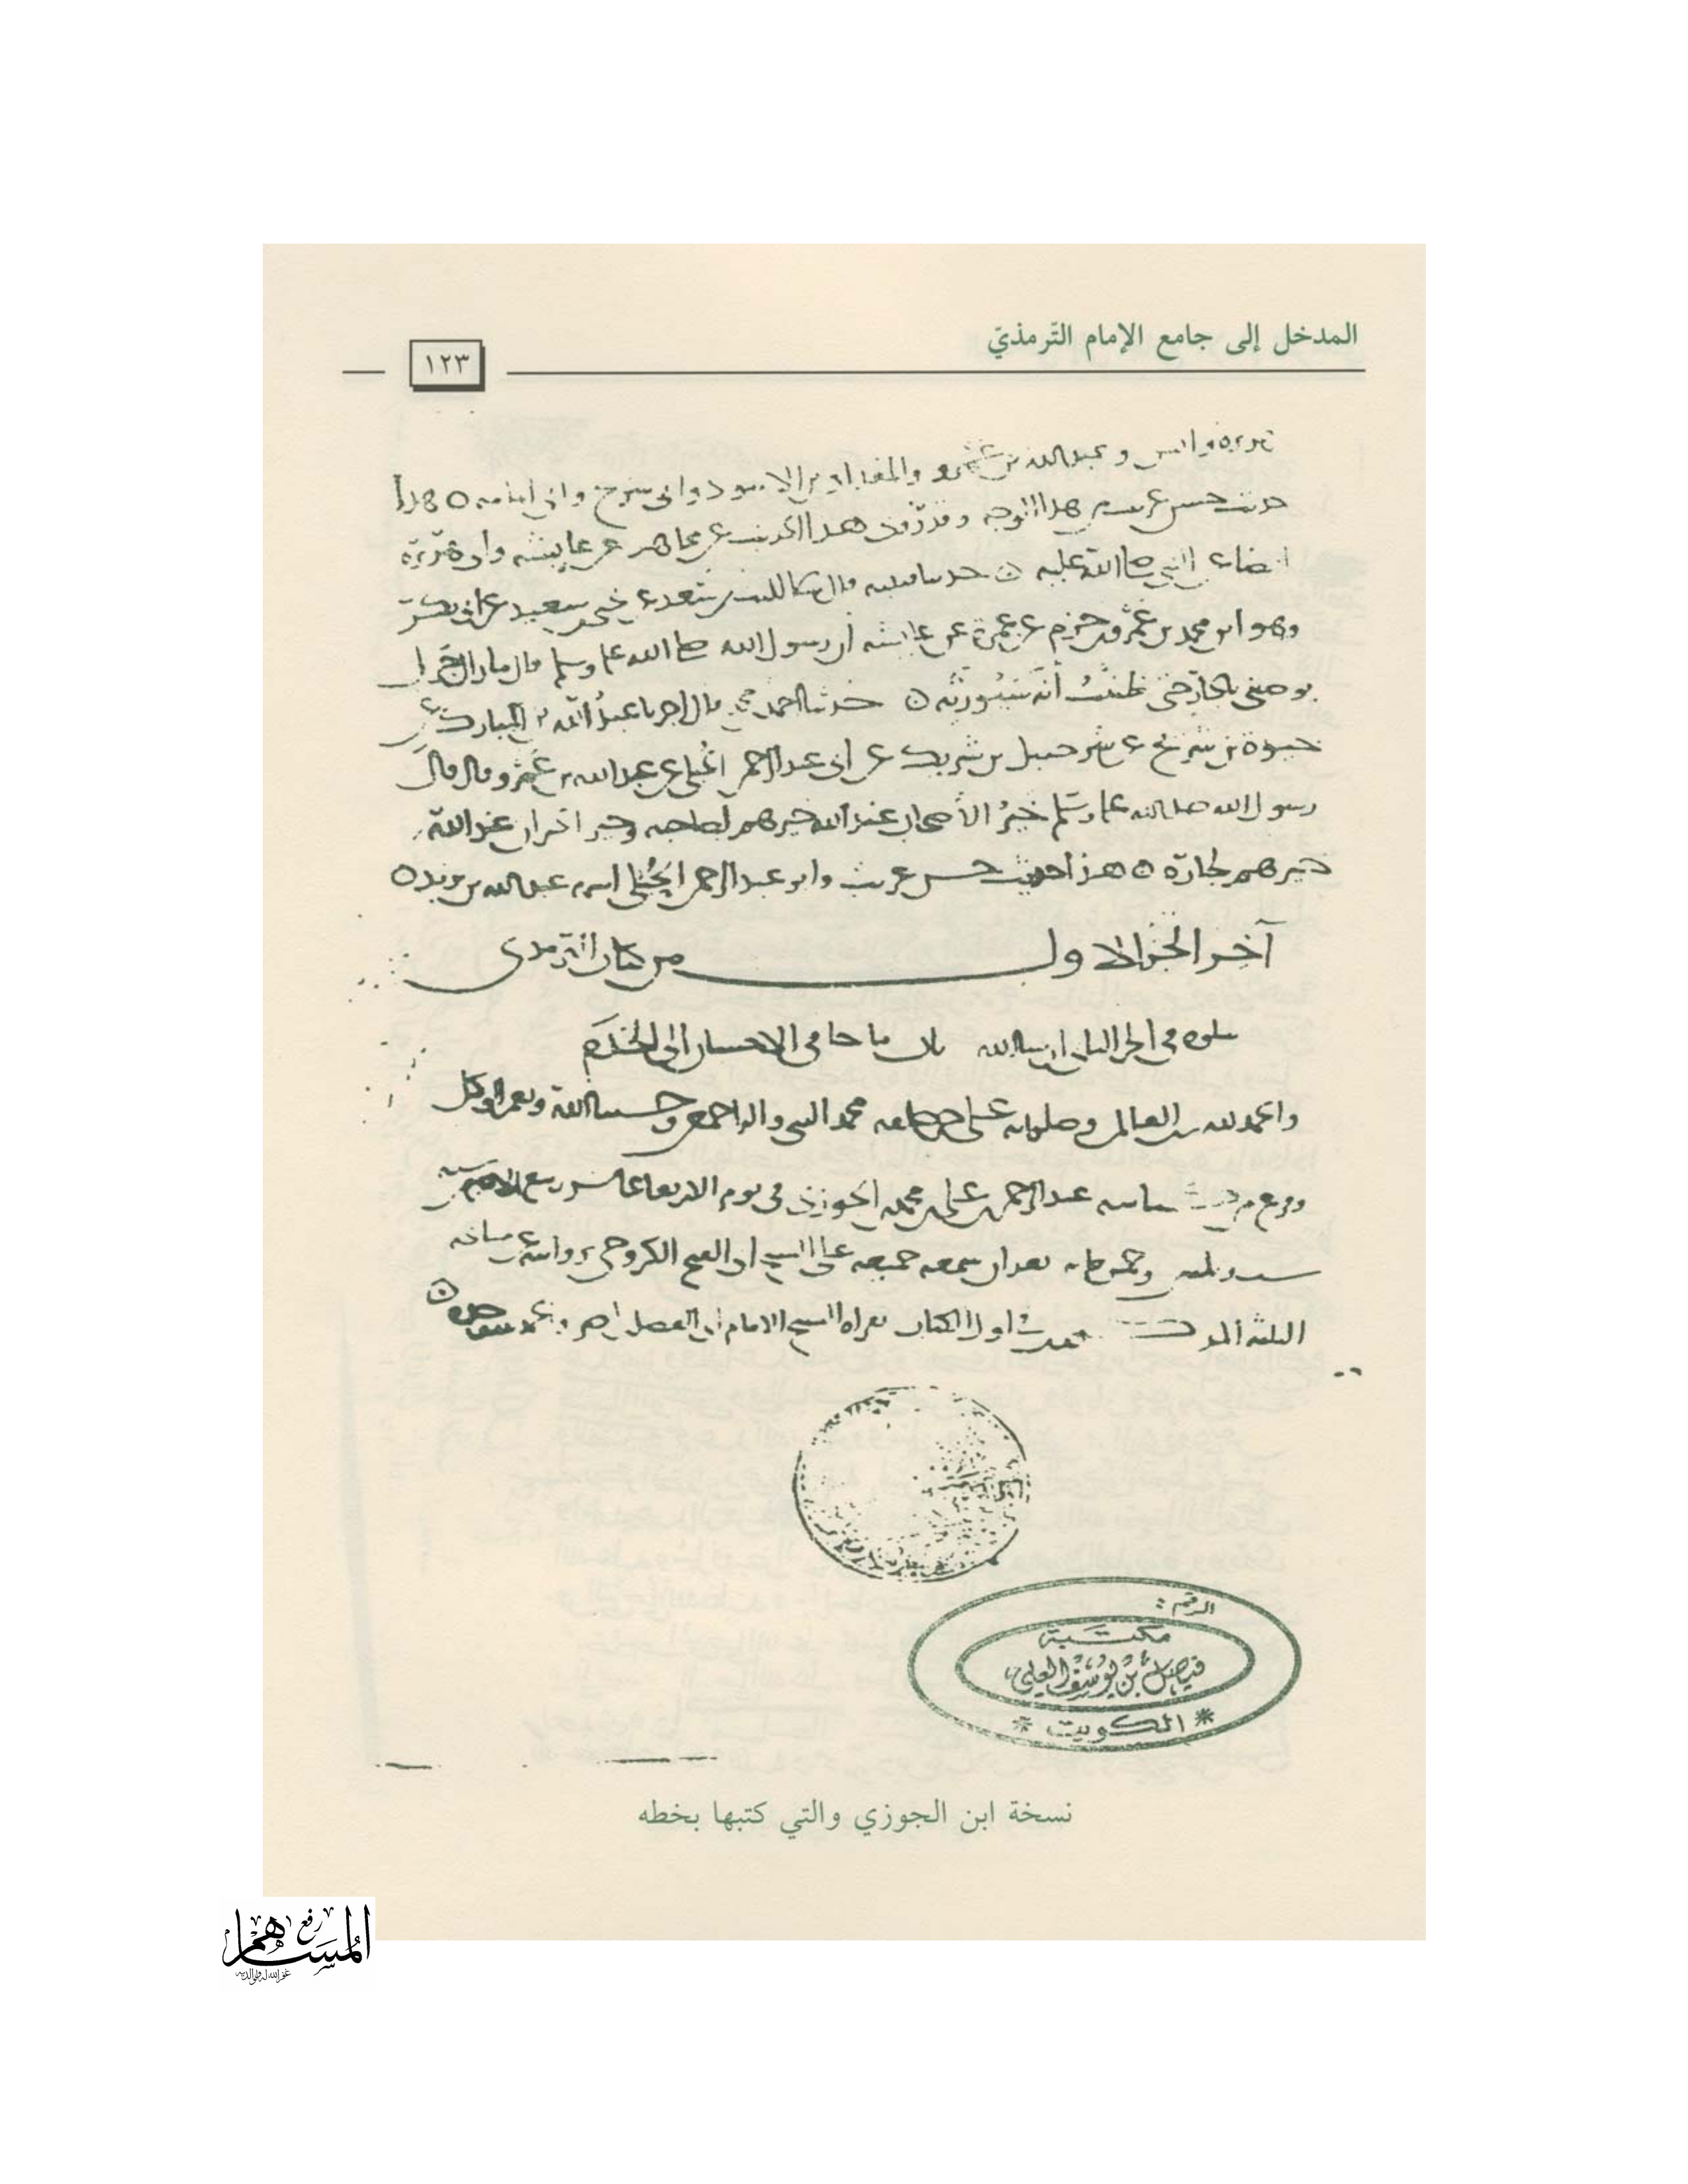 المدخل إلى جامع الإمام التّرمذيّ
١٢٣
وانس و عبدالله بن عمرو والمقداد بن الاسود وابي شريح وابي امامه ه هذا
حديث حسن غريب من هذا الوجه وقد روي هذا الحديث عن مجاهد عن عايشه وابي هريرة
ايضا عن النبي صلى الله عليه ه حدثنا قتيبه قال ثنا الليث بن سعد عن يحيى بن سعيد عن ابي بكر
وهو ابن محمد بن عمرو بن حزم عن عمرة عن عايشه أن رسول الله صلى الله عليه وسلم قال ما زال جبرئيل
يوصيني بالجار حتى ظننتُ أنه سيورثه ه حدثنا احمد بن محمد قال اخبرنا عبدُ الله بن المبارك عن
حيوة بن شريح عن شرحبيل بن شريك عن ابي عبد الرحمن الحُبلي عن عبد الله بن عمرو قال قال
رسول الله صلى الله عليه وسلم خيرُ الأصحاب عند الله خيرهم لصاحبه وخير الجيران عند الله
خيرهم لجاره ه هذا حديث حسن غريب وابو عبد الرحمن الحُبُلي اسمه عبد الله بن يزيد ه
آخر الجزء الاول من كتاب الترمذي
يتلوه في الجزء الثاني ان شا الله باب ما جا في الاحسان إلى الخَدَم
والحمد لله رب العالمين وصلواته على خير خلقه محمد النبي واله اجمعين وحسبنا الله ونعم الوكيل
وفرغ من عبد الرحمن بن علي بن محمد بن الجوزي في يوم الاربعا عاشر ربيع
وخمس مايه بعد ان سمعه جميعه على الشيخ ابي الفتح الكروخي بروايته عن مشايخه
الثلثه اول الكتاب بقراة الشيخ الامام ابي الفضل بن ناصر
الرقم :
مكتبة
فيصل بن يوسف العلي
* الكويت *
نسخة ابن الجوزي والتي كتبها بخطه
رفع
المساهم
غفر الله له ولوالديه